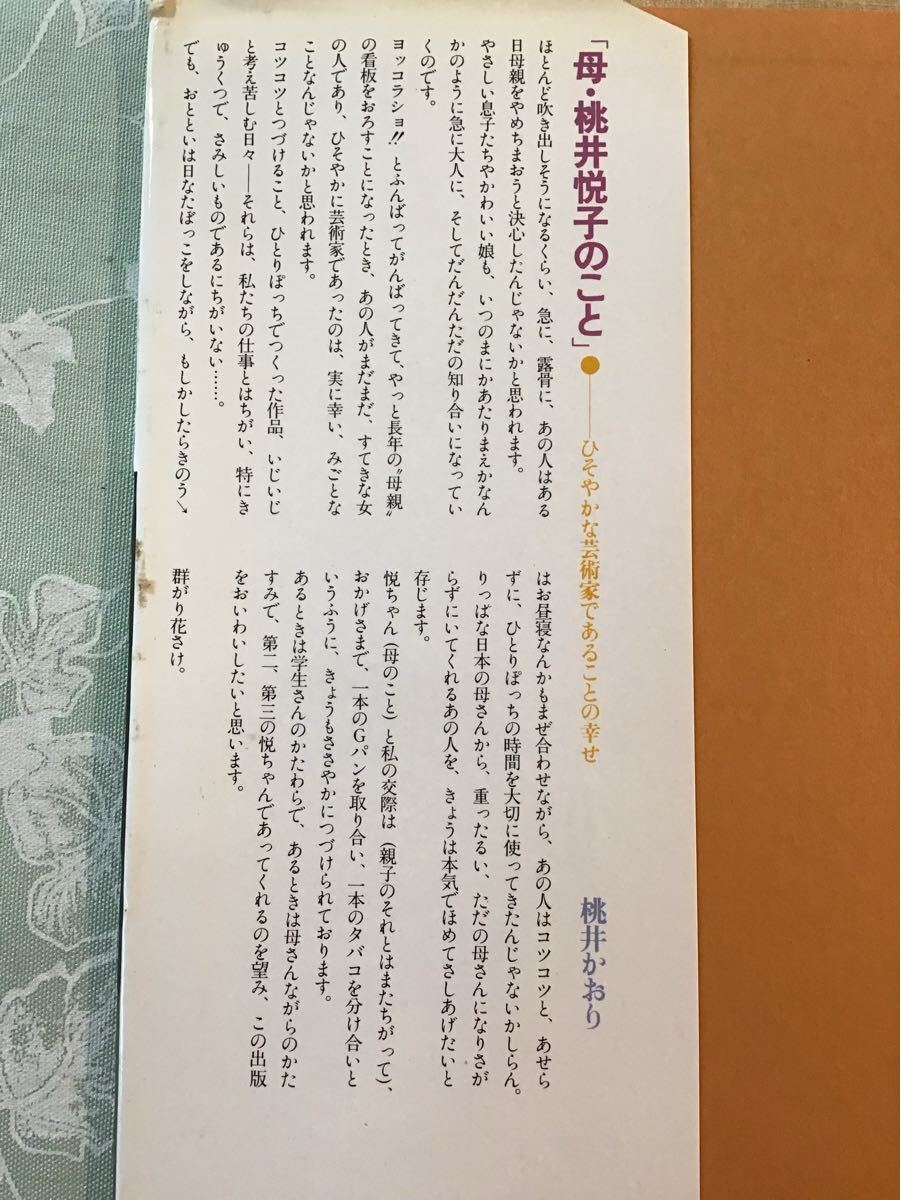 「母・桃井悦子のこと」●――ひそやかな芸術家であることの幸せ
桃井かおり
ほとんど吹き出しそうになるくらい、急に、露骨に、あの人はある
日母親をやめちまおうと決心したんじゃないかと思われます。
やさしい息子たちやかわいい娘も、いつのまにかあたりまえかなん
かのように急に大人に、そしてだんだんただの知り合いになってい
くのです。
ヨッコラショ!! とふんばってがんばってきて、やっと長年の〝母親〟
の看板をおろすことになったとき、あの人がまだまだ、すてきな女
の人であり、ひそやかに芸術家であったのは、実に幸い、みごとな
ことなんじゃないかと思われます。
コツコツとつづけること、ひとりぽっちでつくった作品、いじいじ
と考え苦しむ日々――それらは、私たちの仕事とはちがい、特にき
ゅうくつで、さみしいものであるにちがいない……。
でも、おとといは日なたぼっこをしながら、もしかしたらきのう↘
はお昼寝なんかもまぜ合わせながら、あの人はコツコツと、あせら
ずに、ひとりぽっちの時間を大切に使ってきたんじゃないかしらん。
りっぱな日本の母さんから、重ったるい、ただの母さんになりさが
らずにいてくれるあの人を、きょうは本気でほめてさしあげたいと
存じます。
悦ちゃん（母のこと）と私の交際は（親子のそれとはまたちがって）、
おかげさまで、一本のGパンを取り合い、一本のタバコを分け合いと
いうふうに、きょうもささやかにつづけられております。
あるときは学生さんのかたわらで、あるときは母さんながらのかた
すみで、第二、第三の悦ちゃんであってくれるのを望み、この出版
をおいわいしたいと思います。
群がり花さけ。